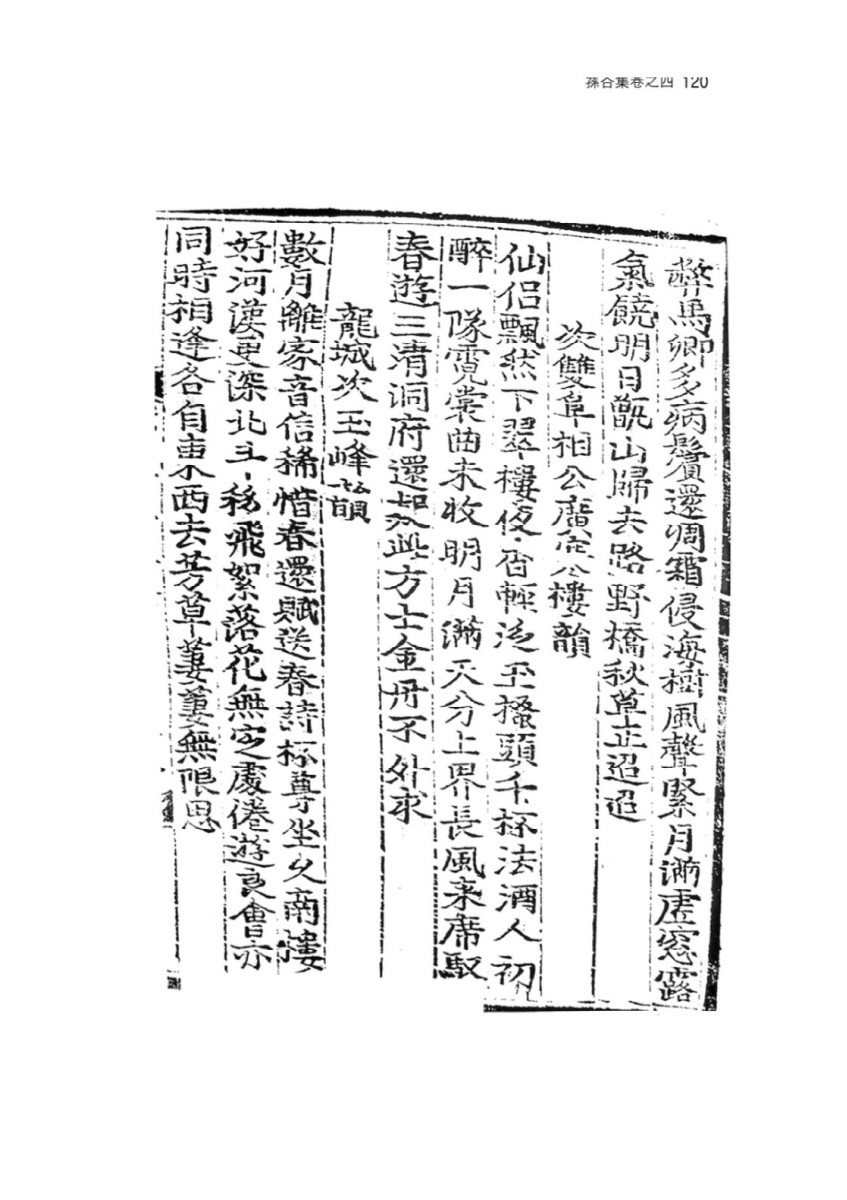 蓀谷集卷之四 120
弊馬卿多病鬢還凋霜侵海樹風聲緊月滿虛窓露
氣饒明日甑山歸去路野橋秋草正迢迢
次雙阜相公廣寒樓韻
仙侶飄然下翠樓夜香輕泛玉搔頭千杯法酒人初
醉一隊霓裳曲未收明月滿天分上界長風來席馭
春遊三淸洞府還如此方士金丹不外求
龍城次玉峰韻
數月離家音信稀惜春還賦送春詩杯尊坐久南樓
好河漢更深北斗移飛絮落花無定處倦遊良會亦
同時相逢各自東西去芳草萋萋無限思